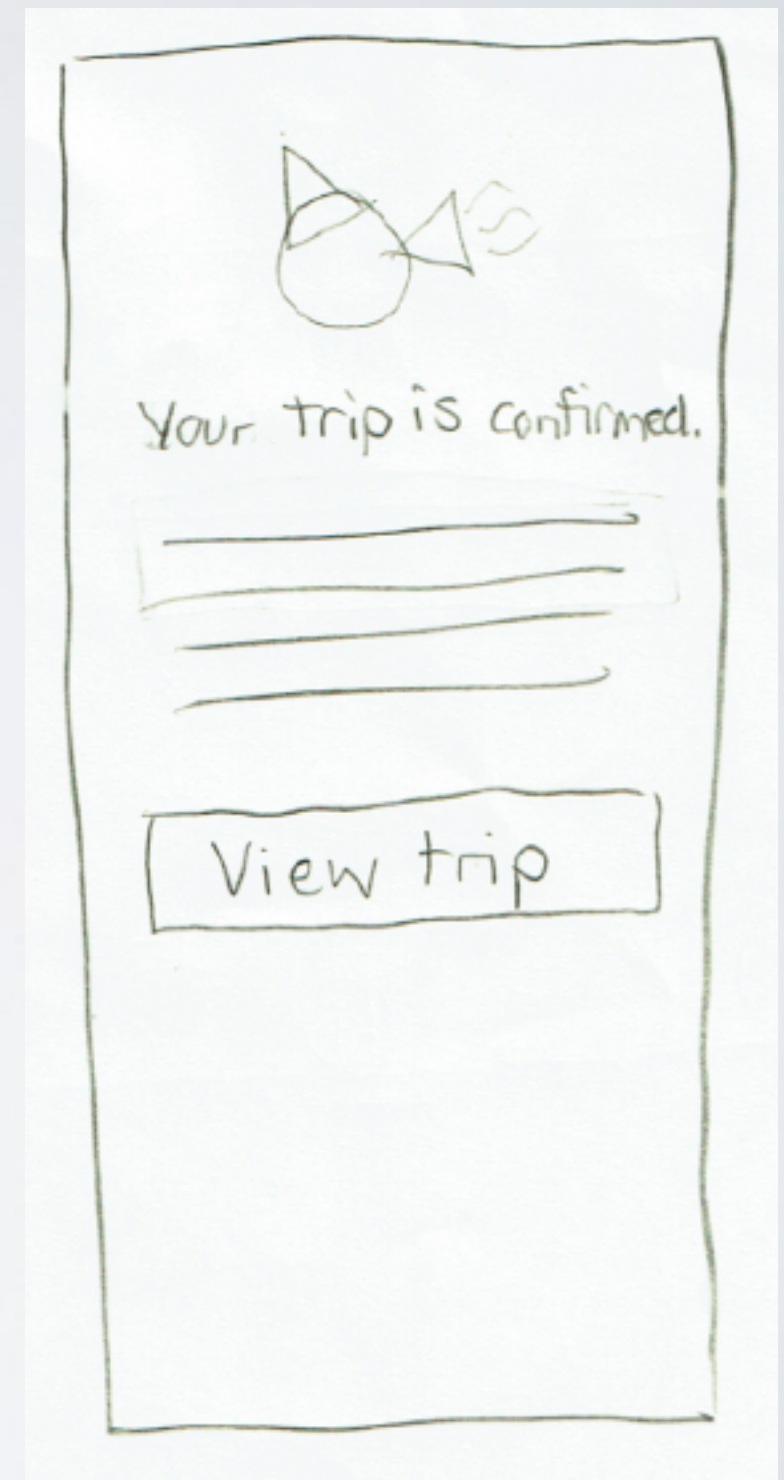 Your trip is confirmed.
View trip